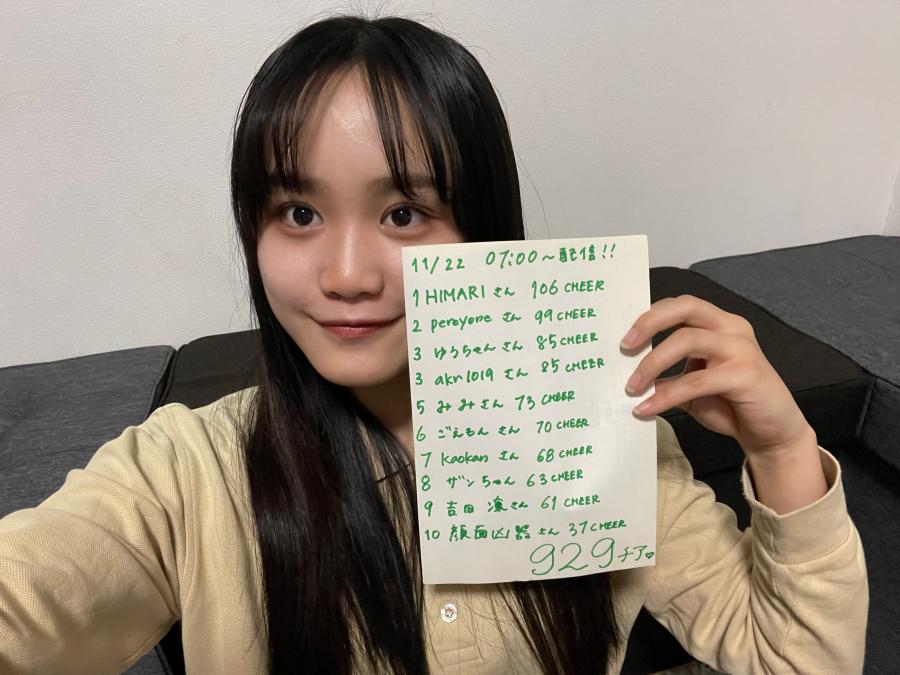 11/22 07:00〜配信!!
1 HIMARI さん 106 CHEER
2 pereyone さん 99 CHEER
3 ゆうちゃん さん 85 CHEER
3 akr1019 さん 85 CHEER
5 みみさん 73 CHEER
6 ごえもん さん 70 CHEER
7 kaokan さん 68 CHEER
8 ザンちゃん 63 CHEER
9 吉田 凜さん 61 CHEER
10 顔面凶器 さん 37 CHEER
929チア♡